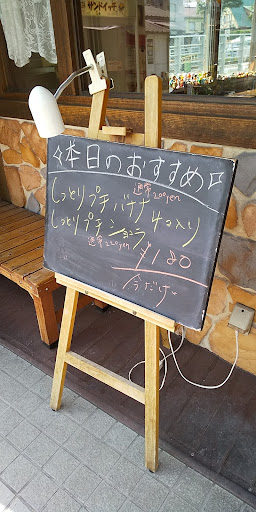 サンドイッチ
本日のおすすめ
通常200yen
しっとりプチバナナ 4コ入り
しっとりプチショコラ
通常200yen
¥180
今だけ